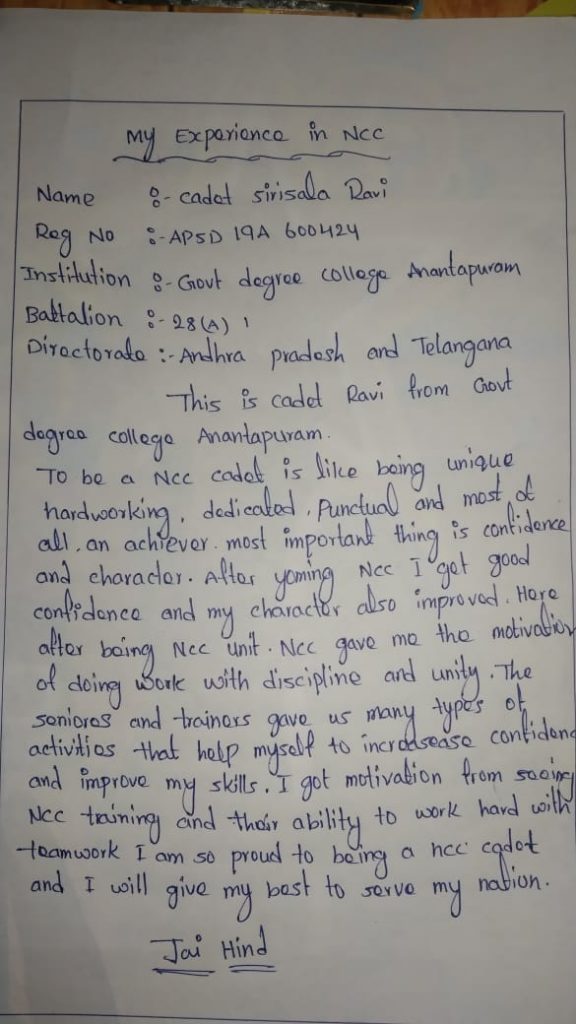 My Experience in NCC
Name :- cadet sirisala Ravi
Reg No :- APSD 19A 600424
Institution :- Govt degree college Anantapuram
Battalion :- 28(A)
Directorate :- Andhra pradesh and Telangana
This is cadet Ravi from Govt
degree college Anantapuram.
To be a NCC cadet is like being unique
hardworking, dedicated, Punctual and most of
all, an achiever. most important thing is confidence
and character. After yoming NCC I get good
confidence and my character also improved. Here
after being NCC unit. NCC gave me the motivation
of doing work with discipline and unity. The
seniores and trainers gave us many types of
activities that help myself to incredsease confidenc
and improve my skills. I got motivation from seeing
NCC training and their ability to work hard with
teamwork I am so proud to being a ncc cadet
and I will give my best to serve my nation.
Jai Hind